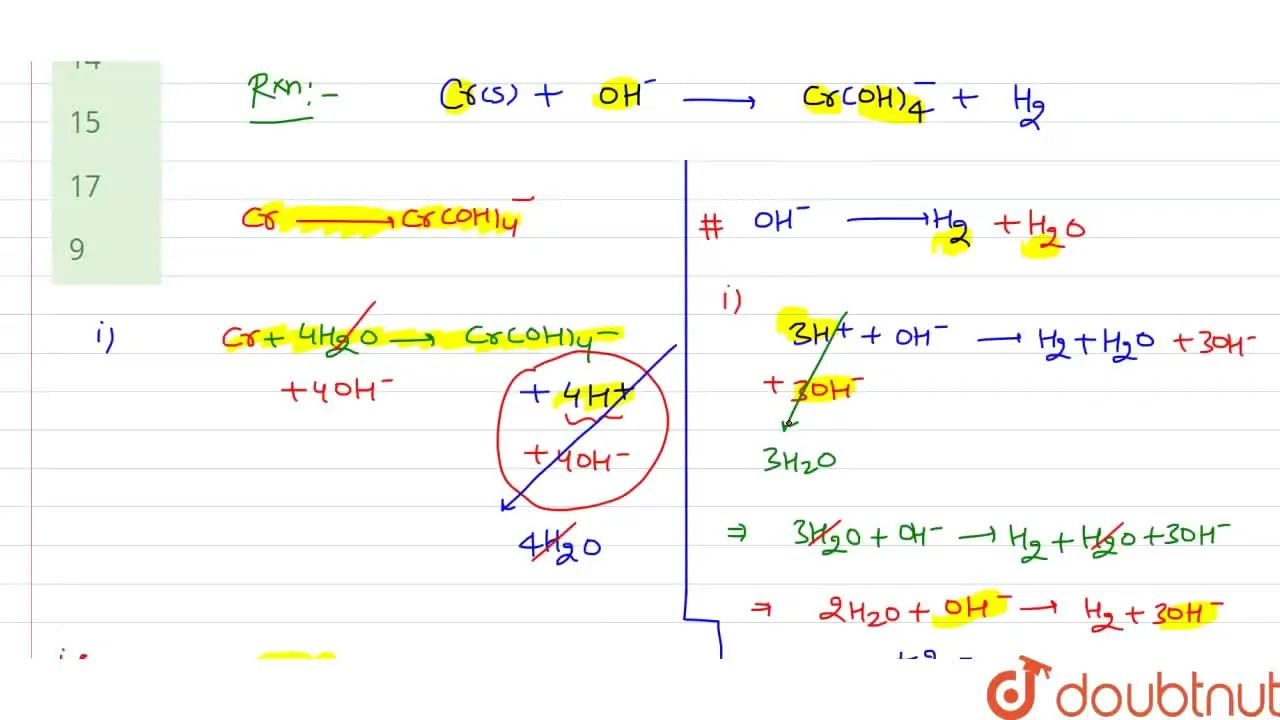 14
15
17
9
Rxn:- Cr(s) + OH⁻ ⟶ Cr(OH)₄⁻ + H₂
Cr ⟶ Cr(OH)₄⁻
i) Cr + 4H₂O ⟶ Cr(OH)₄⁻
+ 4OH⁻ + 4H+
+ 4OH⁻
4H₂O
# OH⁻ ⟶ H₂ + H₂O
i)
3H+ + OH⁻ ⟶ H₂ + H₂O + 3OH⁻
+ 3OH⁻
3H₂O
⇒ 3H₂O + OH⁻ ⟶ H₂ + H₂O + 3OH⁻
⇒ 2H₂O + OH⁻ ⟶ H₂ + 3OH⁻
doubtnut